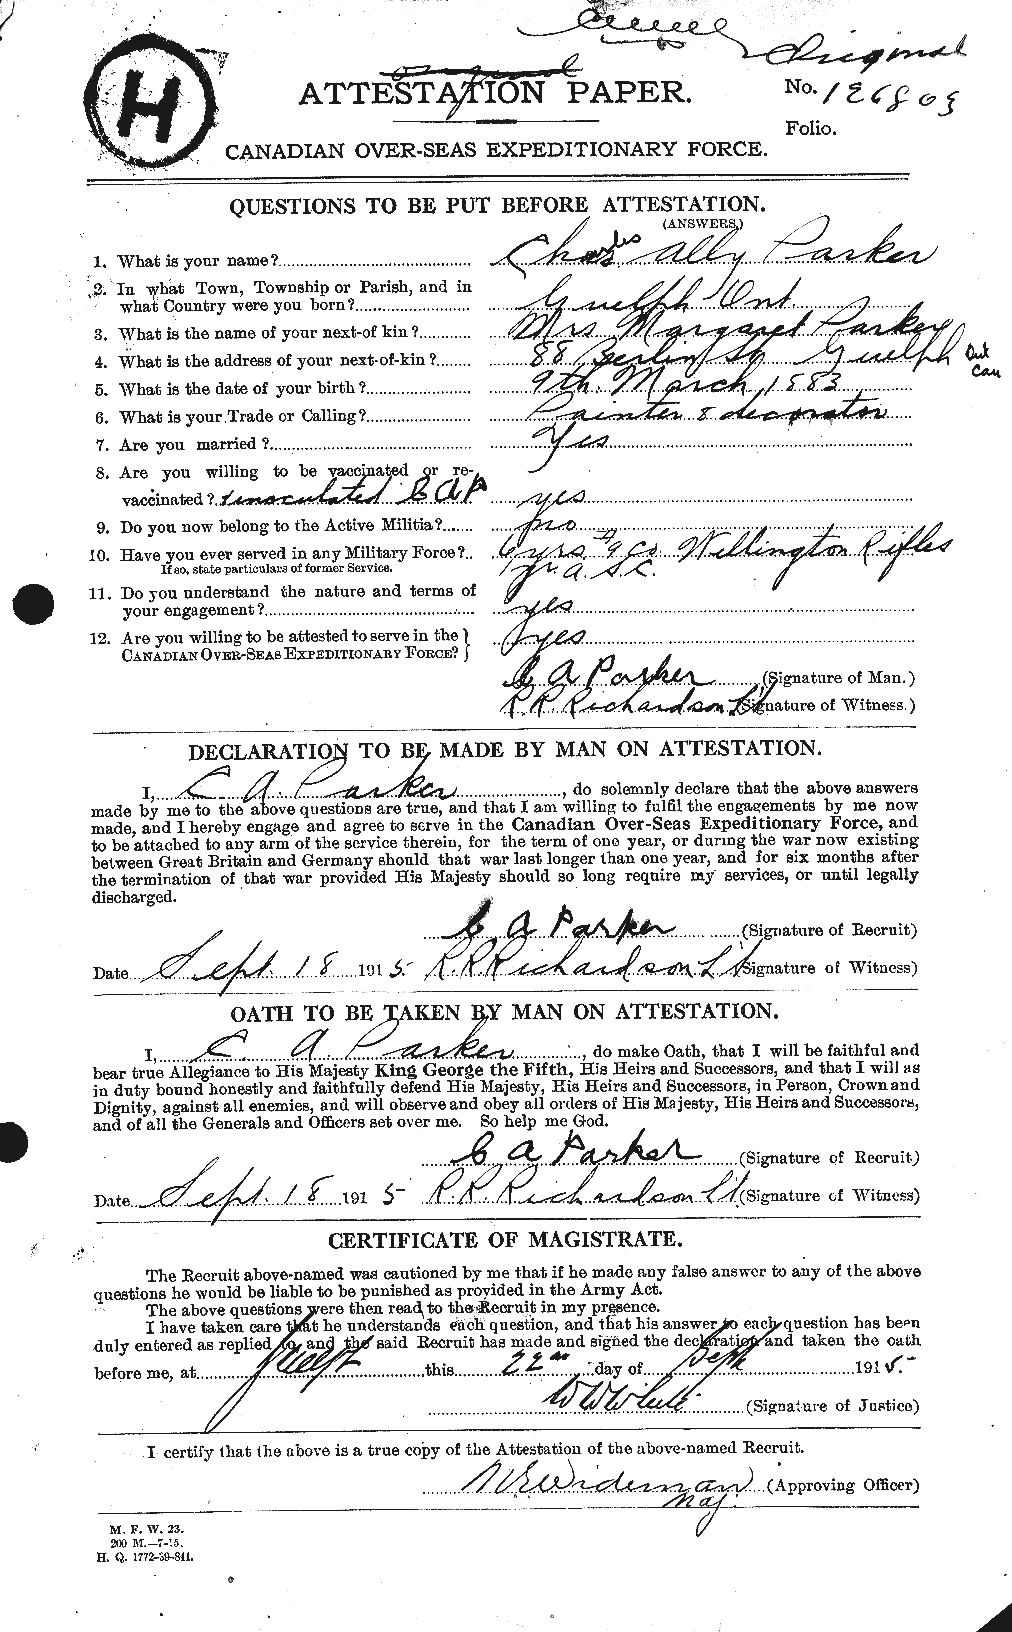 Original
H
Original
ATTESTATION PAPER.
No. 126803
Folio.
CANADIAN OVER-SEAS EXPEDITIONARY FORCE.
QUESTIONS TO BE PUT BEFORE ATTESTATION.
(ANSWERS,)
1. What is your name? Charles Ally Parker
2. In what Town, Township or Parish, and in
what Country were you born? Guelph Ont
3. What is the name of your next-of kin? Mrs Margaret Parker
4. What is the address of your next-of-kin? 88 Berlin St Guelph Ont Can
5. What is the date of your birth? 9th. March, 1883
6. What is your Trade or Calling? Painter & decorator
7. Are you married? Yes
8. Are you willing to be vaccinated or re-
vaccinated? & inoculated CAP yes
9. Do you now belong to the Active Militia? no
10. Have you ever served in any Military Force? 6 yrs # 9 Co. Wellington Rifles
If so, state particulars of former Service. 1 yr. A.S.C.
11. Do you understand the nature and terms of
your engagement? yes
12. Are you willing to be attested to serve in the
CANADIAN OVER-SEAS EXPEDITIONARY FORCE? yes
C A Parker (Signature of Man.)
R.R. Richardson Lt (Signature of Witness.)
DECLARATION TO BE MADE BY MAN ON ATTESTATION.
I, C A Parker, do solemnly declare that the above answers
made by me to the above questions are true, and that I am willing to fulfil the engagements by me now
made, and I hereby engage and agree to serve in the Canadian Over-Seas Expeditionary Force, and
to be attached to any arm of the service therein, for the term of one year, or during the war now existing
between Great Britain and Germany should that war last longer than one year, and for six months after
the termination of that war provided His Majesty should so long require my services, or until legally
discharged.
C A Parker (Signature of Recruit)
Date Sept. 18 1915 R.R. Richardson Lt (Signature of Witness)
OATH TO BE TAKEN BY MAN ON ATTESTATION.
I, C A Parker, do make Oath, that I will be faithful and
bear true Allegiance to His Majesty King George the Fifth, His Heirs and Successors, and that I will as
in duty bound honestly and faithfully defend His Majesty, His Heirs and Successors, in Person, Crown and
Dignity, against all enemies, and will observe and obey all orders of His Majesty, His Heirs and Successors,
and of all the Generals and Officers set over me. So help me God.
C A Parker (Signature of Recruit)
Date Sept. 18 1915 R.R. Richardson Lt. (Signature of Witness)
CERTIFICATE OF MAGISTRATE.
The Recruit above-named was cautioned by me that if he made any false answer to any of the above
questions he would be liable to be punished as provided in the Army Act.
The above questions were then read to the Recruit in my presence.
I have taken care that he understands each question, and that his answer to each question has been
duly entered as replied to, and the said Recruit has made and signed the declaration and taken the oath
before me, at Guelph this 22nd day of Sept 1915.
(Signature of Justice)
I certify that the above is a true copy of the Attestation of the above-named Recruit.
Wideman Maj. (Approving Officer)
M. F. W. 23.
200 M.—7-15.
H. Q. 1772-39-841.